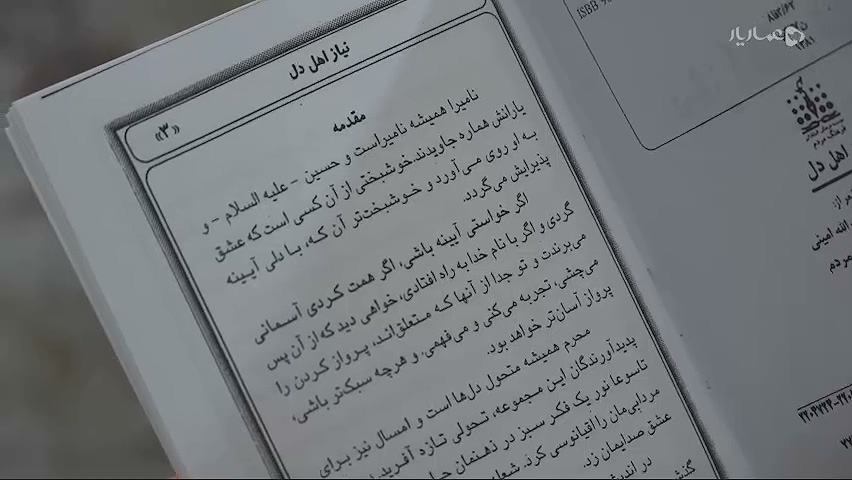 نیاز اهل دل
«۳»
مقدمه
نامیرا همیشه نامیراست و حسین - علیه السلام - و
یارانش هماره جاویدند. خوشبختی از آن کسی است که عشق
به او روی می‌آورد و خوشبخت‌تر آن که، با دلی آیینه
پذیرایش می‌گردد.
اگر خواستی آیینه باشی، اگر همت کردی آسمانی
گردی و اگر با نام خدا به راه افتادی، خواهی دید که از آن پس
می‌برندت و تو جدا از آنها که متعلق‌اند، پرواز کردن را
می‌چشی، تجربه می‌کنی و می‌فهمی. و هرچه سبکتر باشی،
پرواز آسان‌تر خواهد بود.
محرم همیشه متحول دل‌ها است و امسال نیز برای
پدیدآورندگان این مجموعه، تحولی تازه آفرید.
تاسوعا نور یک فکر سبز در ذهنمان
مردابی‌مان را اقیانوسی کرد.
عشق صدایمان زد.
در
ISBB
۱۳۸۱
فرهنگ مردم
اهل دل
الله امینی
مردم
عماریار